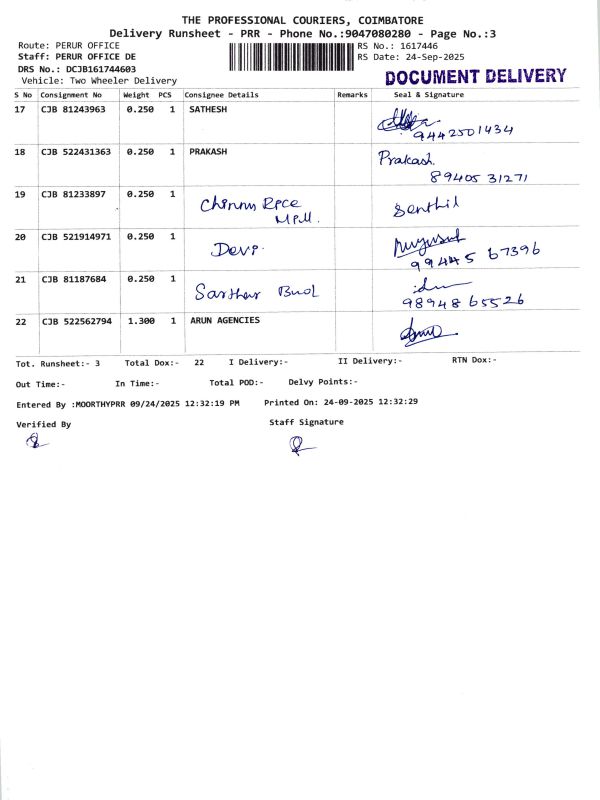 THE PROFESSIONAL COURIERS, COIMBATORE
Delivery Runsheet - PRR - Phone No.:9047080280 - Page No.:3
Route: PERUR OFFICE RS No.: 1617446
Staff: PERUR OFFICE DE RS Date: 24-Sep-2025
DRS No.: DCJB161744603
Vehicle: Two Wheeler Delivery DOCUMENT DELIVERY
S No Consignment No Weight PCS Consignee Details Remarks Seal & Signature
17 CJB 81243963 0.250 1 SATHESH
9442501434
18 CJB 522431363 0.250 1 PRAKASH Prakash.
89405 31271
19 CJB 81233897 0.250 1 Senthil
20 CJB 521914971 0.250 1 Devi.
99445 67396
21 CJB 81187684 0.250 1
98948 65526
22 CJB 522562794 1.300 1 ARUN AGENCIES
Tot. Runsheet:- 3 Total Dox:- 22 I Delivery:- II Delivery:- RTN Dox:-
Out Time:- In Time:- Total POD:- Delvy Points:-
Entered By :MOORTHYPRR 09/24/2025 12:32:19 PM Printed On: 24-09-2025 12:32:29
Verified By Staff Signature